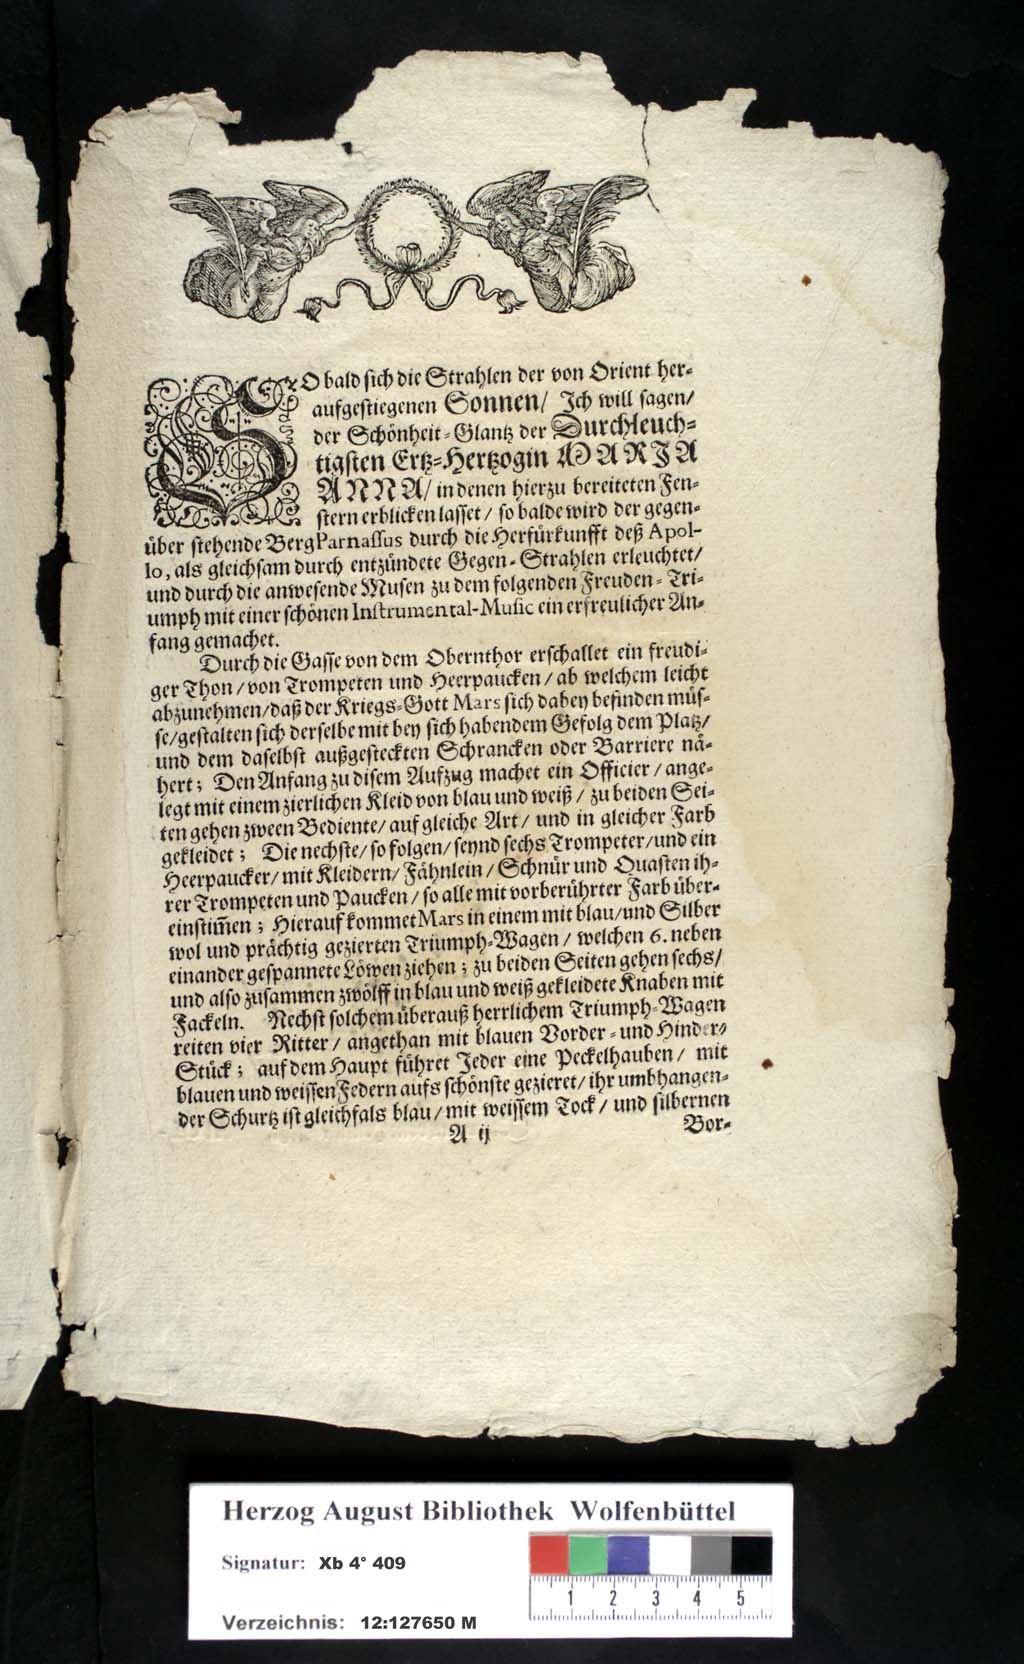 SO bald sich die Strahlen der von Orient her-
aufgestiegenen Sonnen/ Ich will sagen/
der Schönheit-Glantz der Durchleuch-
tigsten Ertz-Hertzogin MARIA
ANNA/ in denen hierzu bereiteten Fen-
stern erblicken lasset/ so balde wird der gegen-
über stehende Berg Parnassus durch die Herfürkunfft deß Apol-
lo, als gleichsam durch entzündete Gegen-Strahlen erleuchtet/
und durch die anwesende Musen zu dem folgenden Freuden-Tri-
umph mit einer schönen Instrumental-Music ein erfreulicher An-
fang gemachet.
Durch die Gasse von dem Obernthor erschallet ein freudi-
ger Thon/ von Trompeten und Heerpaucken/ ab welchem leicht
abzunehmen/ daß der Kriegs-Gott Mars sich dabey befinden müs-
se/ gestalten sich derselbe mit bey sich habendem Gefolg dem Platz/
und dem daselbst außgesteckten Schrancken oder Barriere nä-
hert; Den Anfang zu disem Aufzug machet ein Officier/ ange-
legt mit einem zierlichen Kleid von blau und weiß/ zu beiden Sei-
ten gehen zween Bediente/ auf gleiche Art/ und in gleicher Farb
gekleidet; Die nechste/ so folgen/ seynd sechs Trompeter/ und ein
Heerpaucker/ mit Kleidern/ Fähnlein/ Schnür und Quasten ih-
rer Trompeten und Paucken/ so alle mit vorberührter Farb über-
einstim̃en; Hierauf kommet Mars in einem mit blau/ und Silber
wol und prächtig gezierten Triumph-Wagen/ welchen 6. neben
einander gespannete Löwen ziehen; zu beiden Seiten gehen sechs/
und also zusammen zwölff in blau und weiß gekleidete Knaben mit
Fackeln. Nechst solchem überauß herrlichem Triumph-Wagen
reiten vier Ritter/ angethan mit blauen Vorder- und Hinder-
Stück; auf dem Haupt führet Jeder eine Peckelhauben/ mit
blauen und weissen Federn aufs schönste gezieret/ ihr umbhangen-
der Schurtz ist gleichfals blau/ mit weissem Tock/ und silbernen
A ij Bor-
Herzog August Bibliothek Wolfenbüttel
Signatur: Xb 4° 409
1 2 3 4 5
Verzeichnis: 12:127650 M